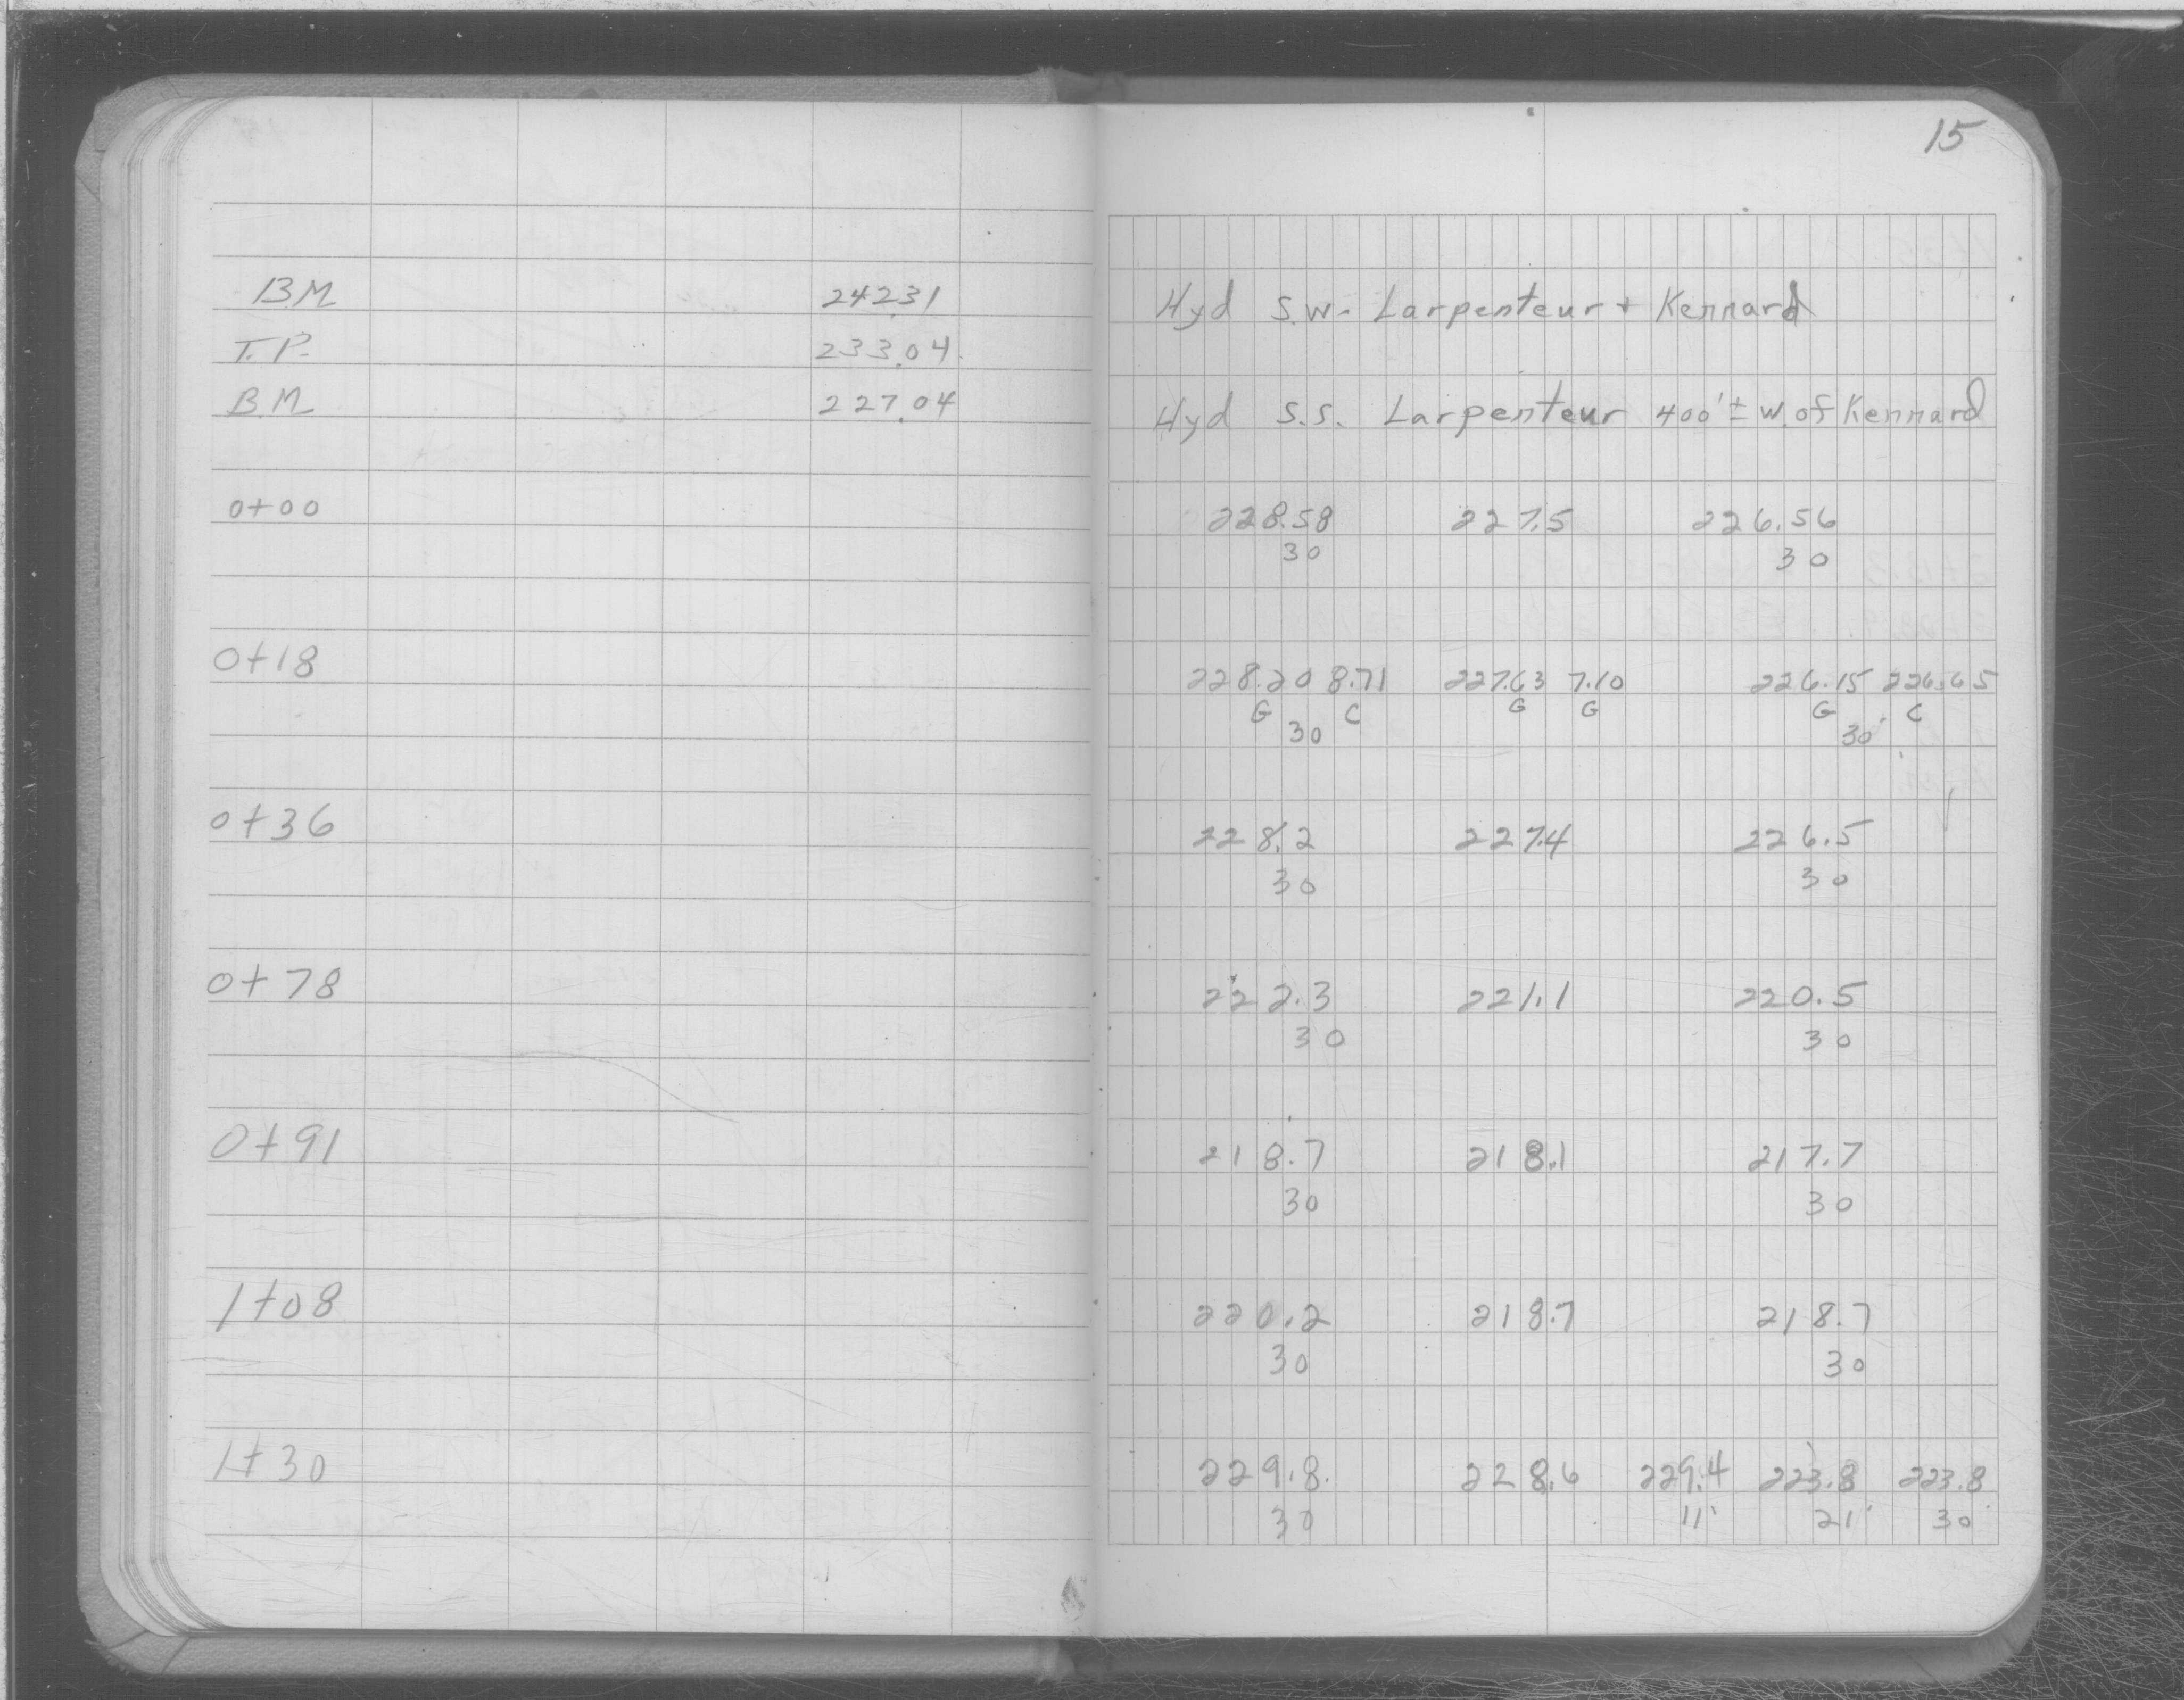 15
BM 242.31 Hyd S.W. Larpenteur + Kennard
T.P. 233.04
B.M 227.04 Hyd S.S. Larpenteur 400'± W. of Kennard
0+00 228.58 227.5 226.56
30 30
0+18 228.20 8.71 227.63 7.10 226.15 226.65
G C G G G C
30 30
0+36 228.2 227.4 226.5
30 30
0+78 222.3 221.1 220.5
30 30
0+91 218.7 218.1 217.7
30 30
1+08 220.2 218.7 218.7
30 30
1+30 229.8 228.6 229.4 223.8 223.8
30 11' 21' 30